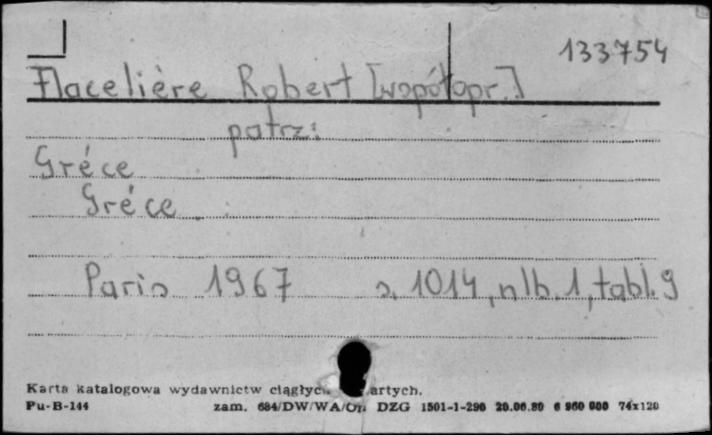 133754
Flacelière Robert [współopr.]
patrz:
Gréce
Gréce
Paris 1967 s. 1014, nlb. 1, tabl. 9
Karta katalogowa wydawnictw ciągłyc artych.
Pu-B-144 zam. 684/DW/WA/Op DZG 1501-1-290 20.06.80 6 960 000 74x120